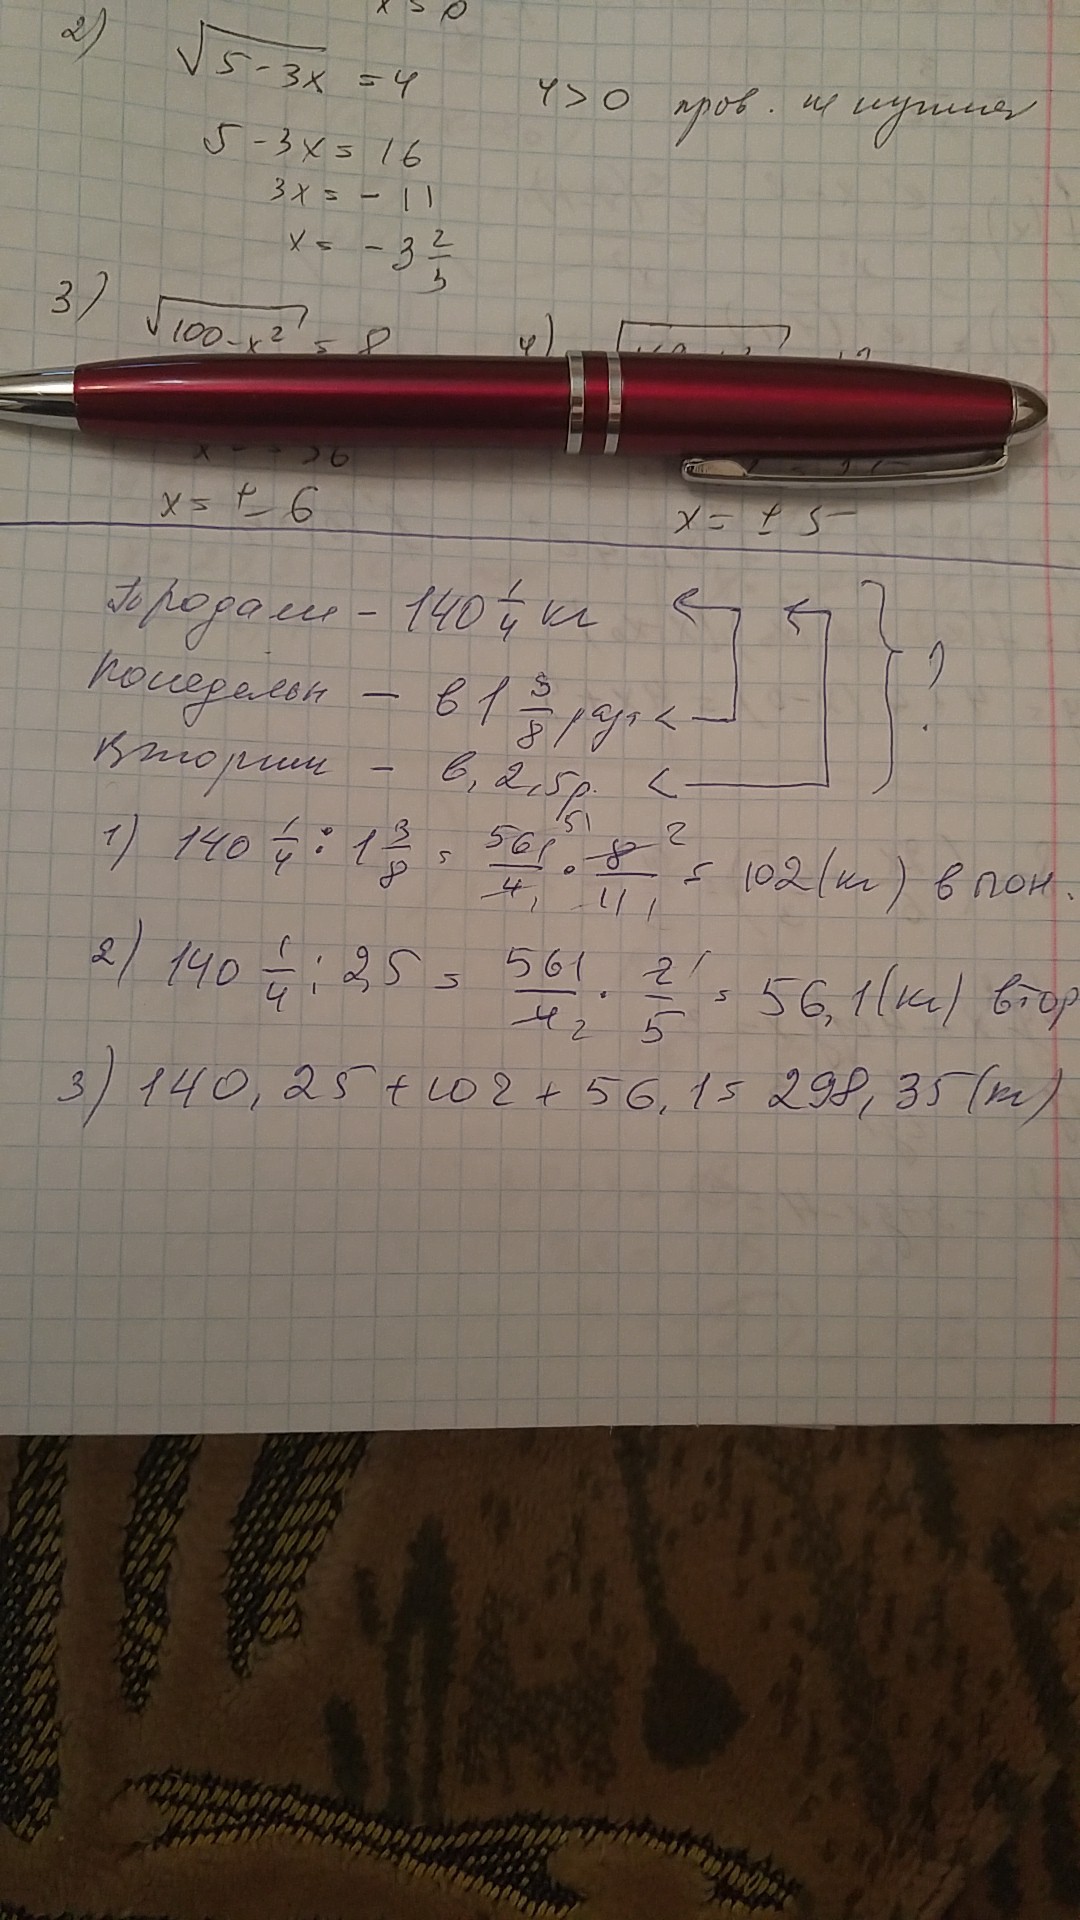 x = 0
2) √5-3x = 4 4>0 пров. не нужна
5-3x = 16
3x = -11
x = -3 2/3
3) √100-x² = 8 4)
x = ± 6 x = ± 5
Продали - 140 1/4 кг
Понедельн - в 1 3/8 раза < } ?
Вторник - в 2,5 р. <
1) 140 1/4 : 1 3/8 = 561/4 · 8/11 = 102 (кг) в пон.
2) 140 1/4 : 2,5 = 561/4 · 2/5 = 56,1 (кг) втор
3) 140,25 + 102 + 56,1 = 298,35 (кг)